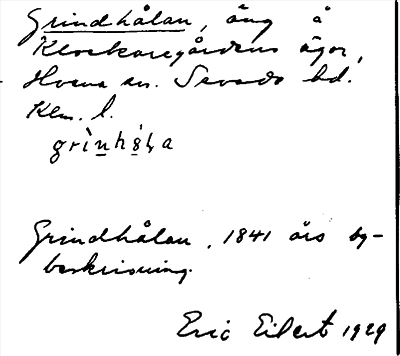 Grindhålan, äng å
Klockaregårdens ägor,
Hvena sn. Sevede hd.
Klm. l.
grìn̲hò̲ɭa
Grindhålan, 1841 års by-
beskrivning.
Eric Eilert 1929